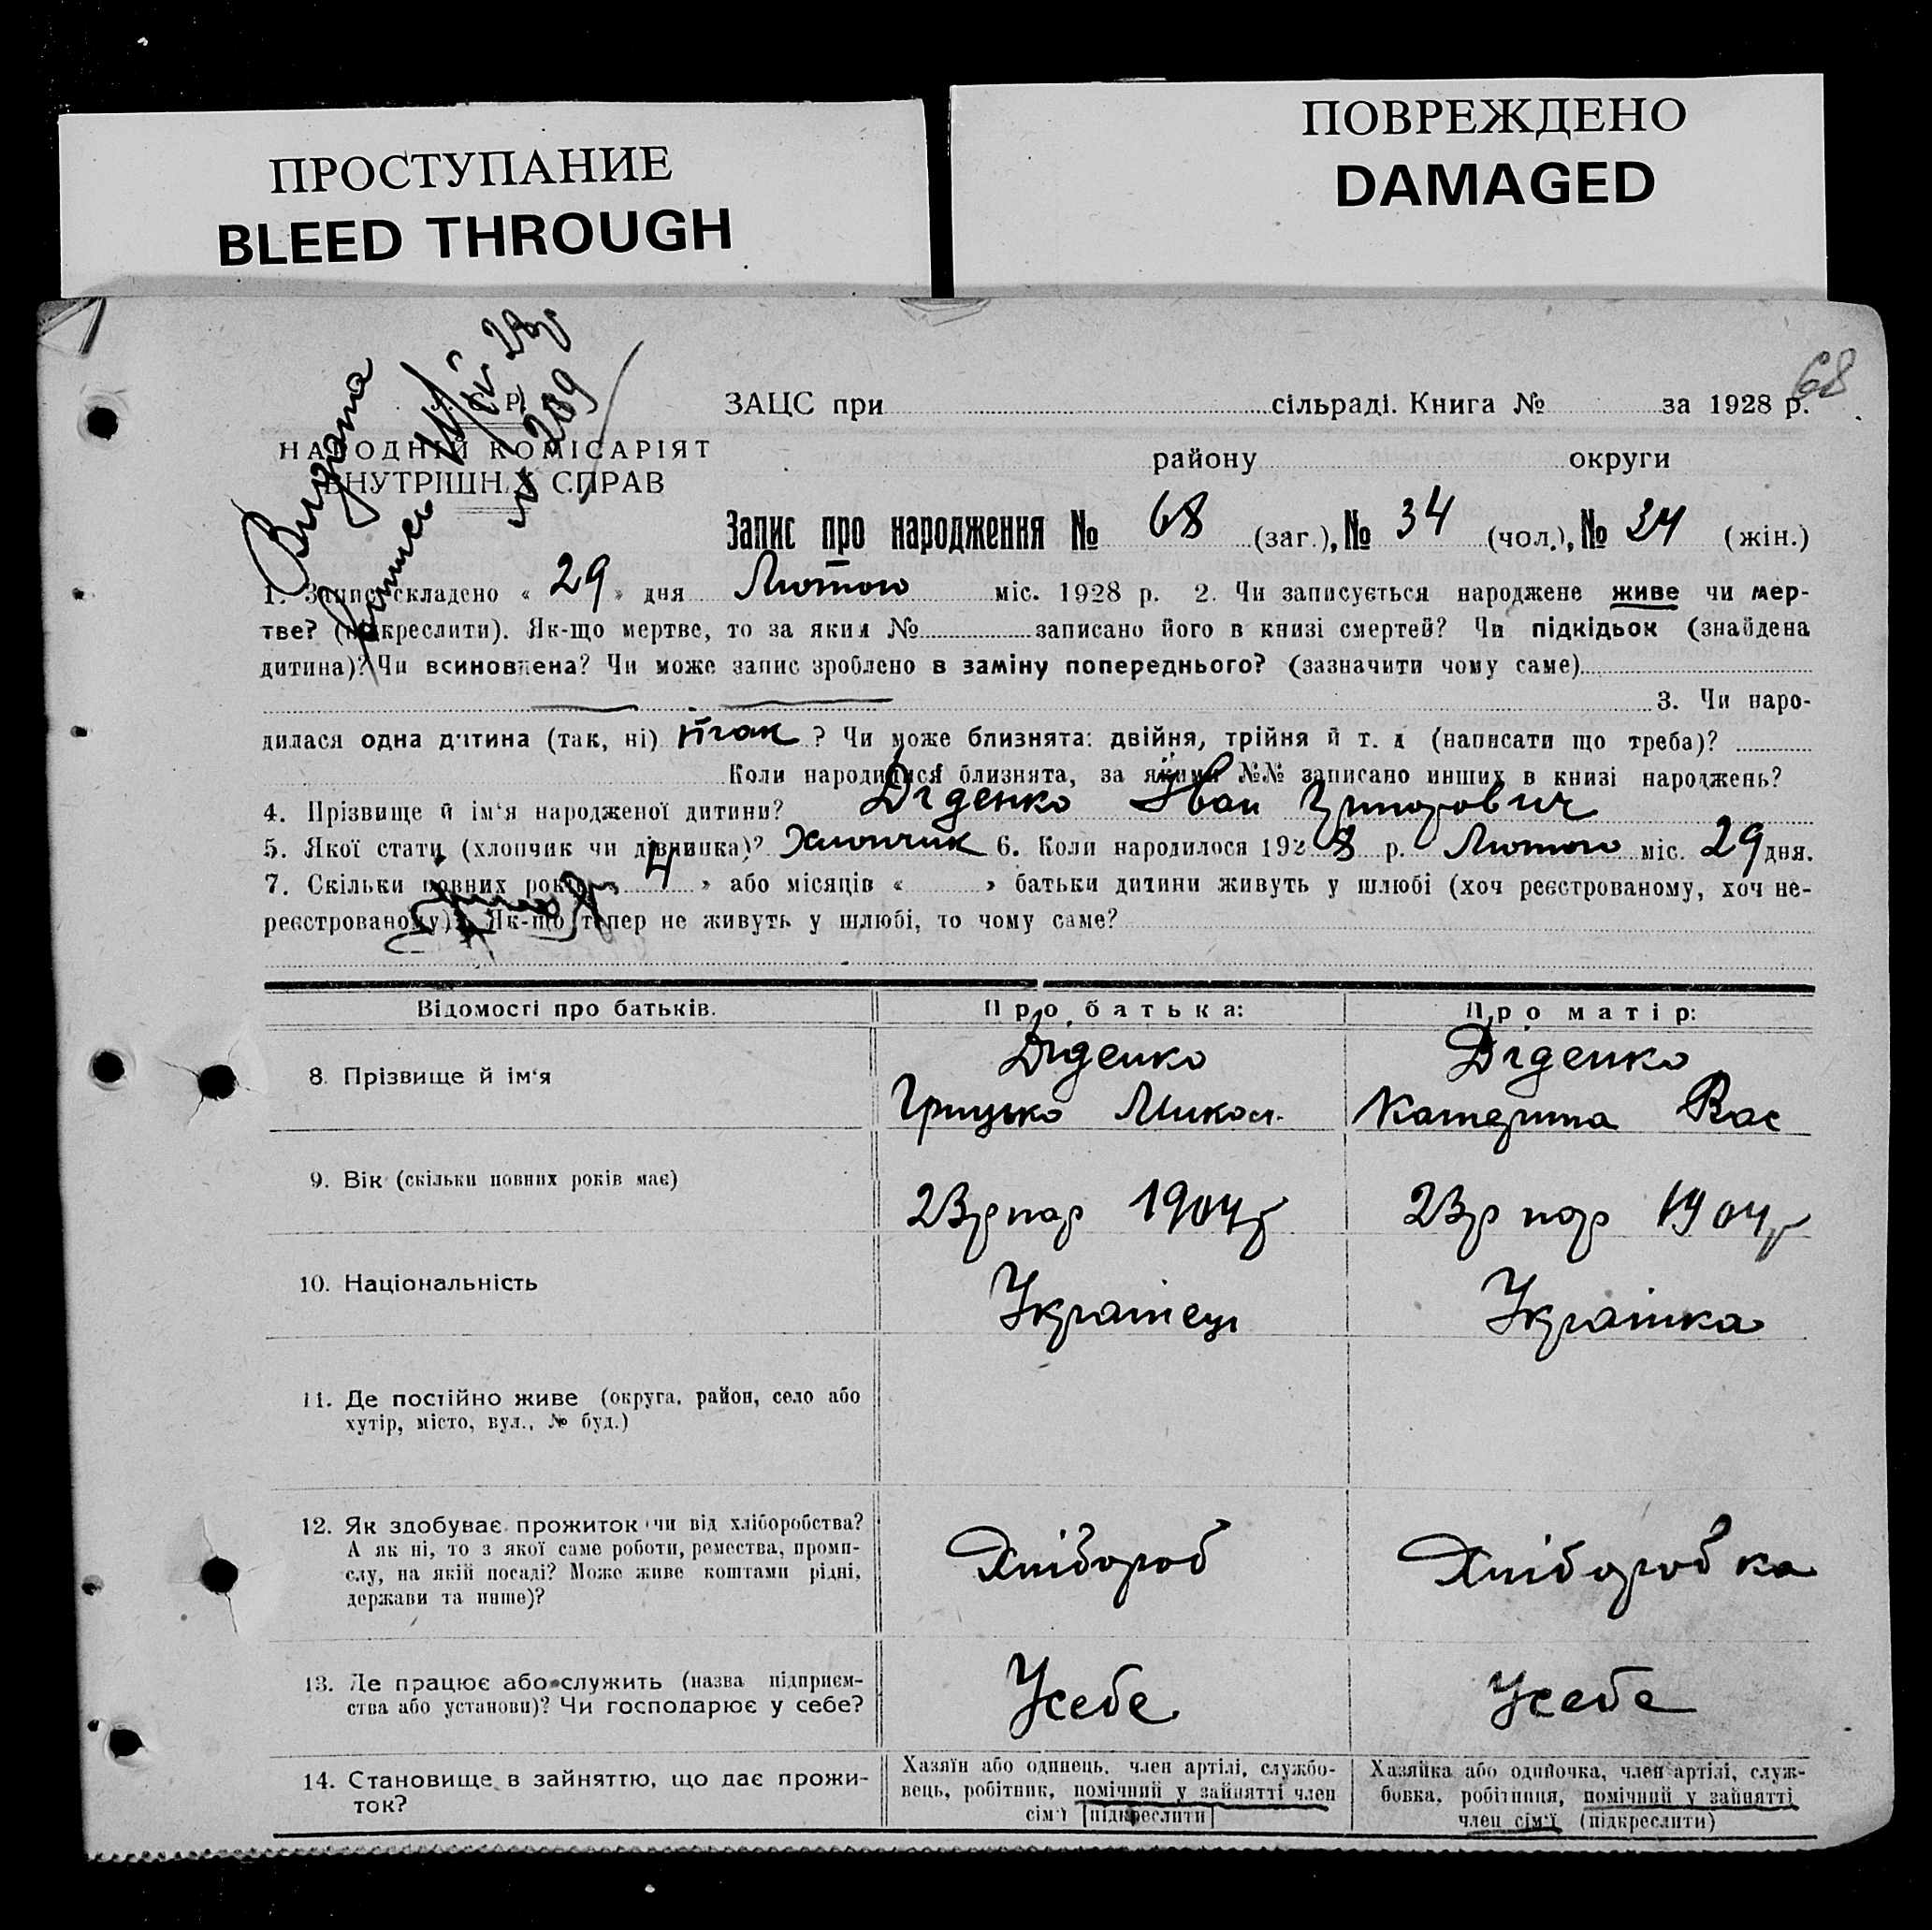 ПРОСТУПАНИЕ
BLEED THROUGH
ПОВРЕЖДЕНО
DAMAGED
68
Видана
№ 209
ЗАЦС при сільраді. Книга № за 1928 р.
НАРОДНІЙ КОМІСАРІЯТ
ВНУТРІШНІХ СПРАВ
району округи
Запис про народження № 68 (заг.), № 34 (чол.), № 34 (жін.)
1. Запис складено « 29 » дня Лютого міс. 1928 р. 2. Чи записується народжене живе чи мер-
тве? (підкреслити). Як-що мертве, то за яким № записано його в книзі смертей? Чи підкідьок (знайдена
дитина)? Чи всиновлена? Чи може запис зроблено в заміну попереднього? (зазначити чому саме)
3. Чи наро-
дилася одна дитина (так, ні) так ? Чи може близнята: двійня, трійня й т. д (написати що треба)?
Коли народилися близнята, за якими №№ записано инших в книзі народжень?
4. Прізвище й ім'я народженої дитини? Діденко Іван Григорович
5. Якої стати (хлопчик чи дівчинка)? Хлопчик 6. Коли народилося 1928 р. Лютого міс. 29 дня.
7. Скільки повних років « 4 » або місяців « » батьки дитини живуть у шлюбі (хоч реєстрованому, хоч не-
реєстрованому)? Як-що тепер не живуть у шлюбі, то чому саме?
Відомості про батьків.
Про батька:
Про матір:
8. Прізвище й ім'я
Діденко
Грицько Микол.
Діденко
Катерина Вас
9. Вік (скільки повних років має)
23 р нар 1904 р
23 р нар 1904 р
10. Національність
Українець
Українка
11. Де постійно живе (округа, район, село або
хутір, місто, вул., № буд.)
12. Як здобуває прожиток чи від хліборобства?
А як ні, то з якої саме роботи, ремества, проми-
слу, на якій посаді? Може живе коштами рідні,
держави та инше)?
Хлібороб
Хліборобка
13. Де працює або служить (назва підприєм-
ства або установи)? Чи господарює у себе?
Усебе
Усебе
14. Становище в зайняттю, що дає прожи-
ток?
Хазяїн або одинець, член артілі, службо-
вець, робітник, помічний у зайнятті член
сім'ї [підкреслити]
Хазяйка або одиночка, член артілі, служ-
бовка, робітниця, помічний у зайнятті
член сім'ї (підкреслити)